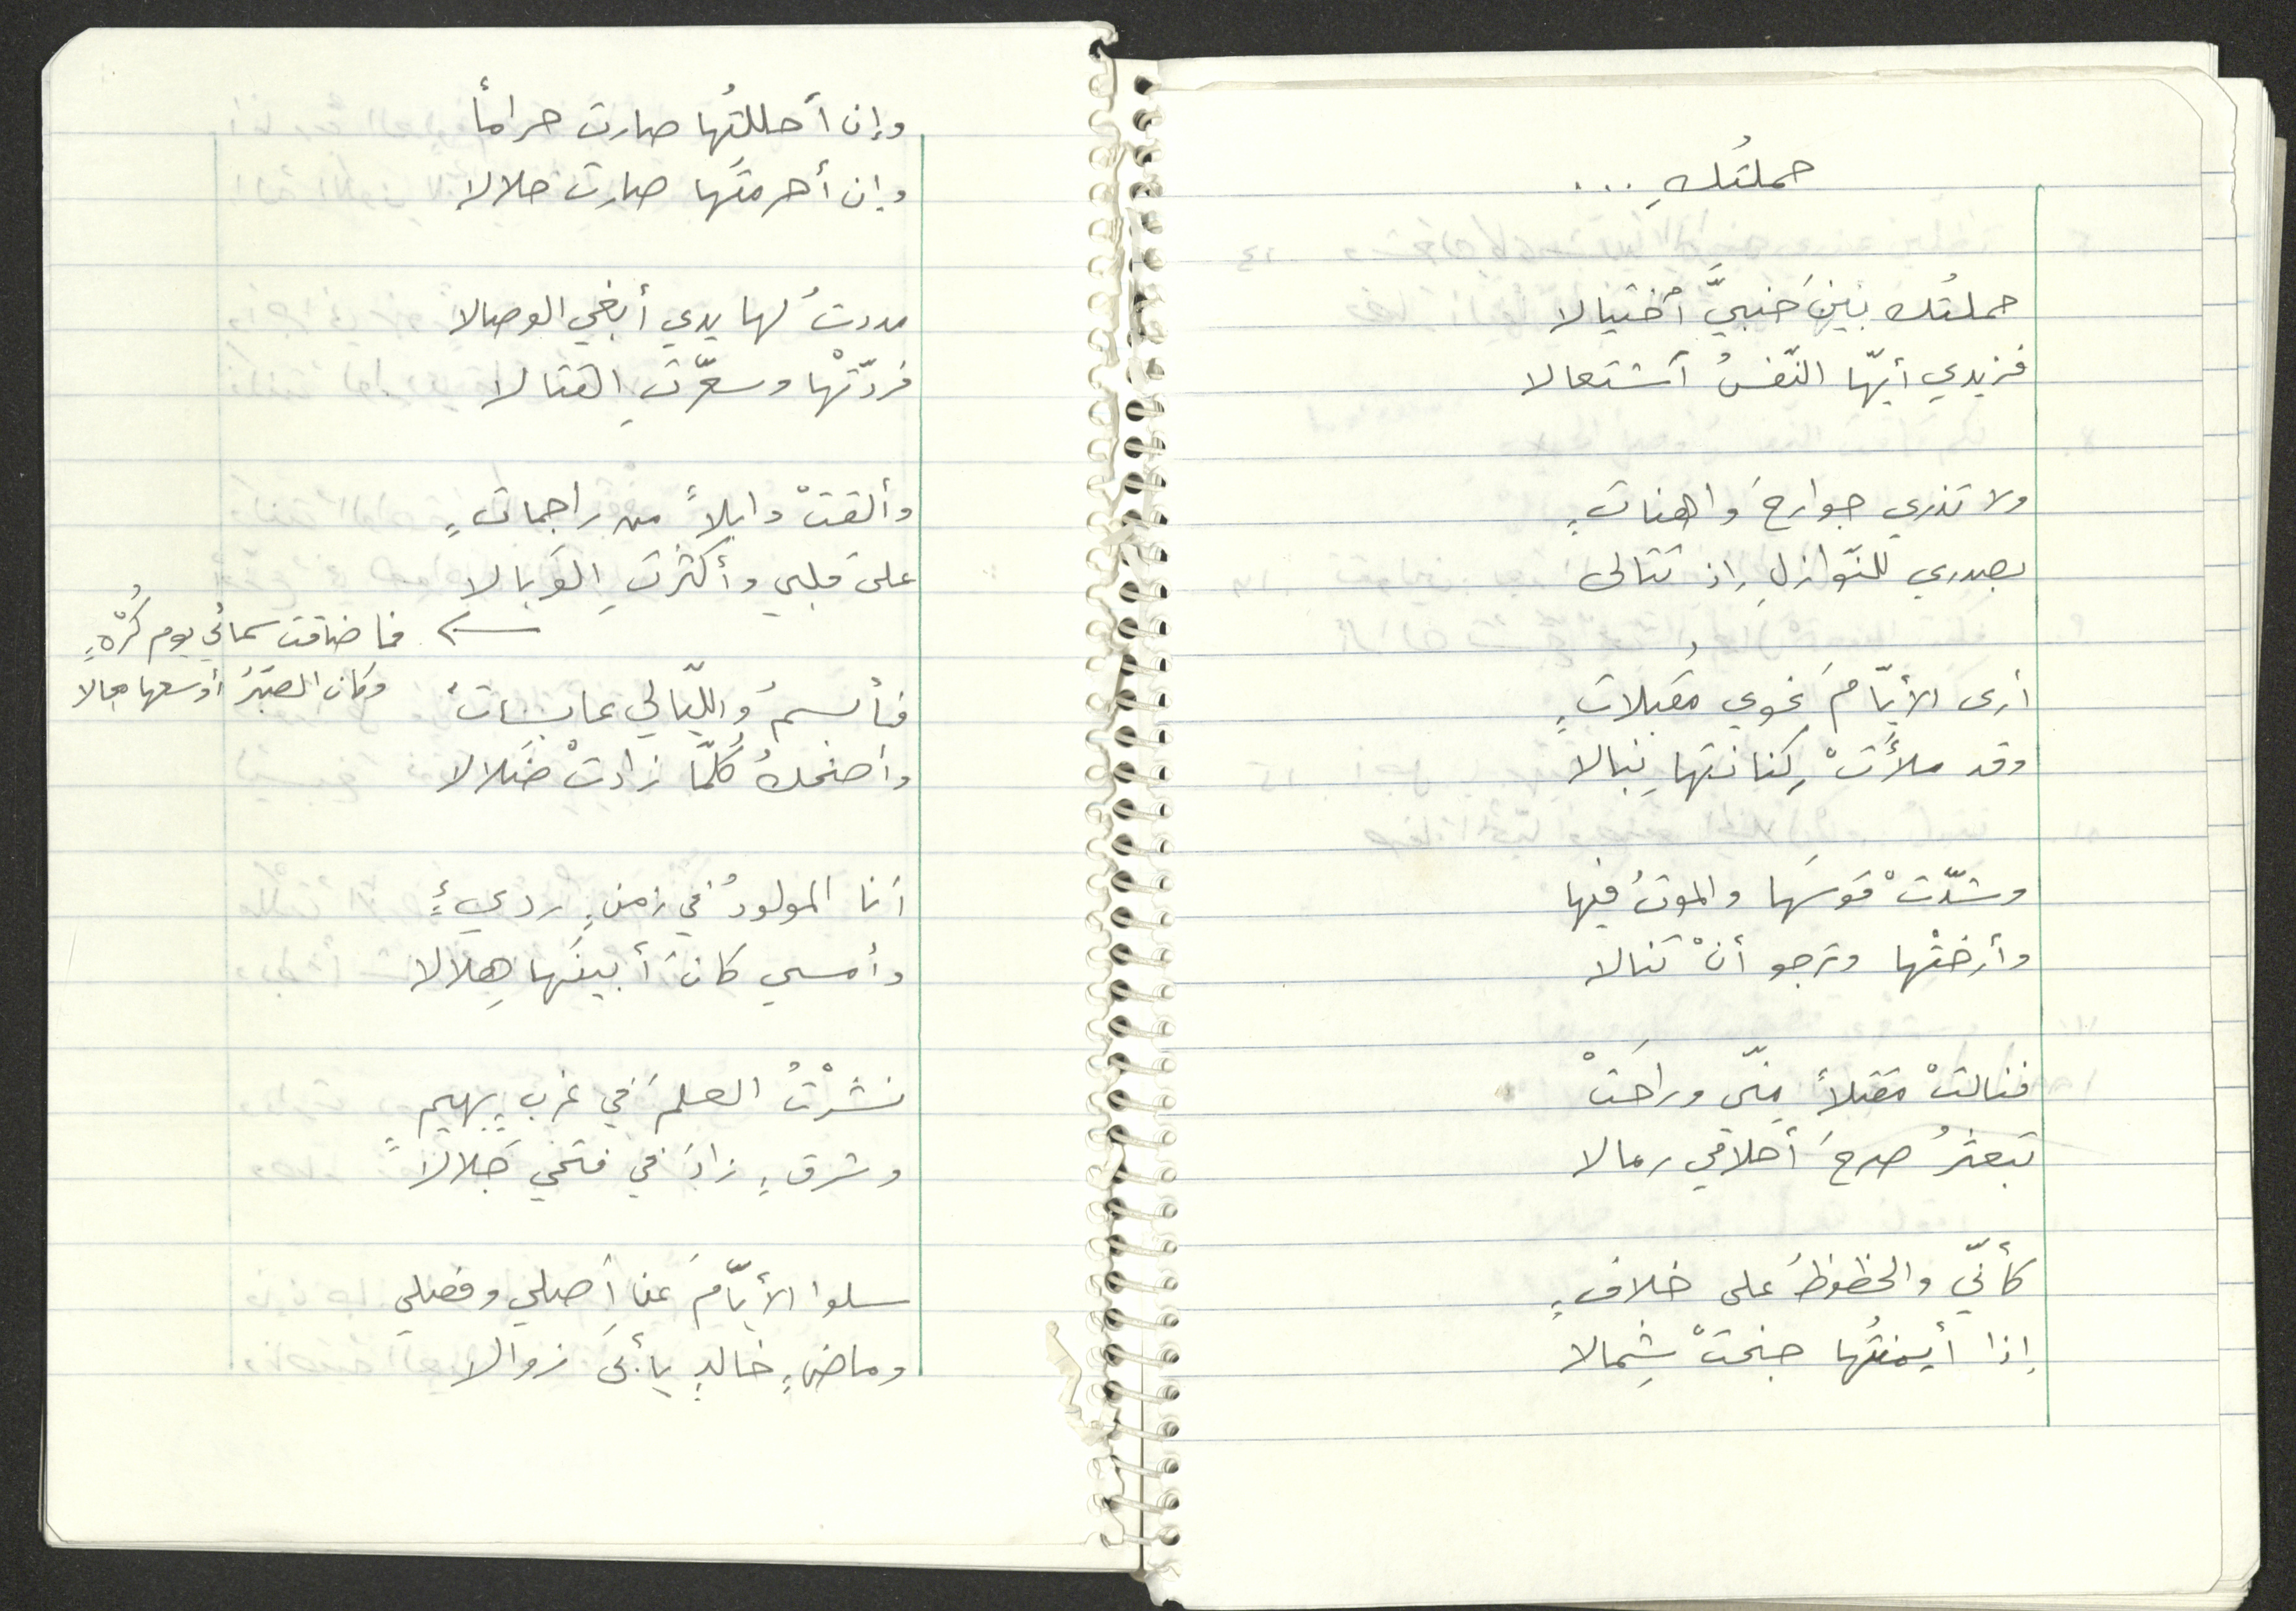 حملتُكِ ...
حملتُك بَيْنَ جَنبيَّ اختيالا
فزيدي أيّها النّفسُ اشتعالا
ولا تذري جوارحَ واهناتٍ
بصدري للنّوازلِ إذ تتالى
أرى الأيّامَ نحوي مُقبلاتٍ
وقد ملأَتْ كِنانتها نِبالا
وشدّتْ قوسَها والموتُ فيها
وأرخَتْها وترجو أنْ تَنالا
فنالتْ مَقتلاً منّي وراحَتْ
تبعثرُ صرحَ أحلامي رمالا
كأنّي والحظوظُ على خلافٍ
إذا أيمنتُها جنحَتْ شِمالا
وإن أحللتُها صارت حراماً
وإن أحرمتُها صارت حلالا
مددتُ لها يدي أبغي الوصالا
فردّتْها وسعّرتِ القتالا
وألقتْ وابلاً من راجماتٍ
على قلبي وأكثرَتِ الوَبالا
فما ضاقت سمائي يوم كُرْهٍ
وكان الصّبرُ أوسعها مجالا
فأبسمُ واللّيالي عابساتٌ
وأضحكُ كُلّما زادتْ ضَلالا
أنا المولودُ في زمنٍ رديءٍ
وأمسي كان أبينَها هِلالا
نشرْتُ العلمَ في غربٍ بهيمٍ
وشرقٍ زادَ في فتحي جَلالاً
سلوا الأيّامَ عن أصلي وفصلي
وماضٍ خالدٍ يأبى زوالا